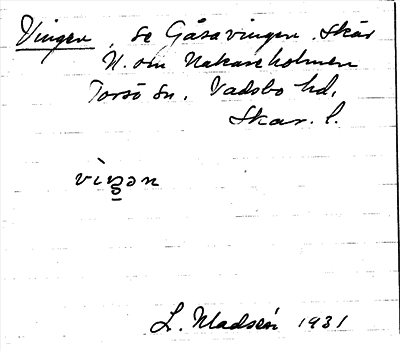 Vingen, se Gåsavingen. Skär
N. om Nakaneholmen
Torsö sn. Vadsbo hd,
Skar. l.
vìŋən
L. Madsén 1931